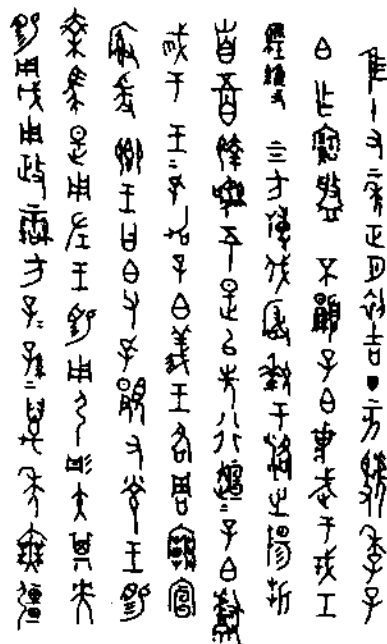 隹十又二年正月初吉丁亥虢季子
白乍寶盤不顯子白壯武于戎工
經維四方搏伐玁狁于洛之陽折
首五百執訊五十是以先行桓=子白獻
馘于王=孔加子白義王各周廟宣
廟爰鄉王曰白父孔顯又光王賜
乘馬是用左王賜用弓彤矢其央
賜用戉用政蠻方子=孫=萬年無疆